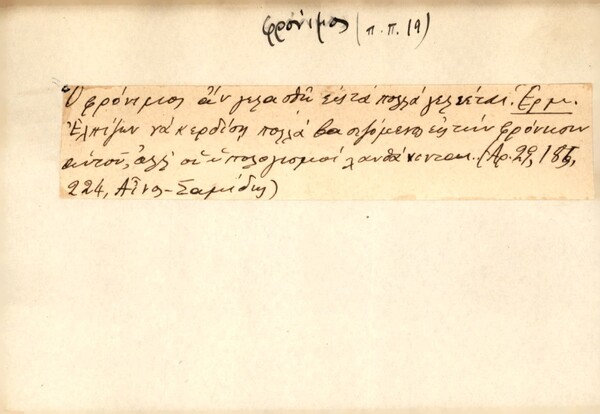 φρόνιμος (π.π. 19)
Ὁ φρόνιμος ἄν γελασθῇ εἰς τά πολλά γελιέται. Ἑρμ.
Ἐλπίζων νά κερδίσῃ πολλά βασιζόμενος εἰς τήν φρόνησιν
αὐτοῦ, ἀλλ' οἱ ὑπολογισμοί λανθάνονται. (Ἀρ. 29, 185,
224, Αἶνος-Σαμίδης)